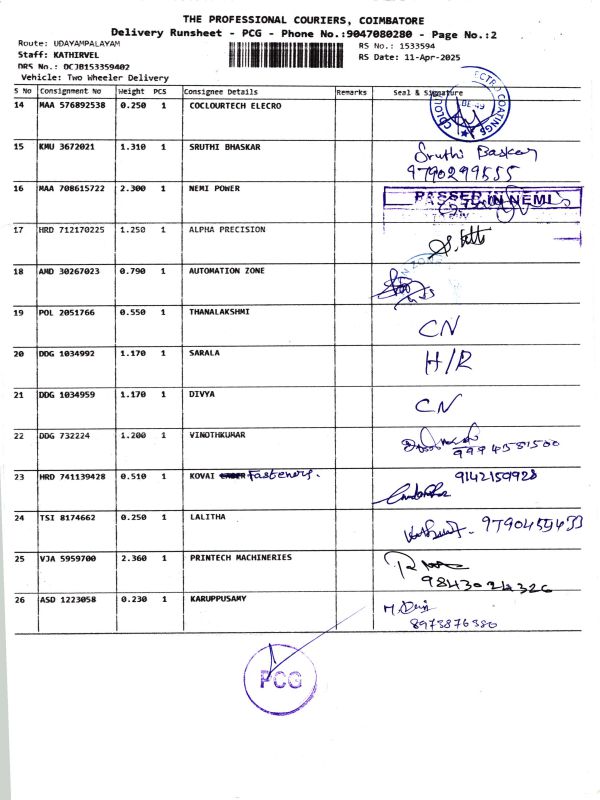 THE PROFESSIONAL COURIERS, COIMBATORE
Delivery Runsheet - PCG - Phone No.:9047080280 - Page No.:2
Route: UDAYAMPALAYAM RS No.: 1533594
Staff: KATHIRVEL RS Date: 11-Apr-2025
DRS No.: DCJB15335940​2
Vehicle: Two Wheeler Delivery
S No Consignment No Weight PCS Consignee Details Remarks Seal & Signature
14 MAA 576892538 0.250 1 COCLOURTECH ELECRO
15 KMU 3672021 1.310 1 SRUTHI BHASKAR Sruthi Baskar
9790299555
16 MAA 708615722 2.300 1 NEMI POWER PASSED IN NEMI
17 HRD 712170225 1.250 1 ALPHA PRECISION
18 AMD 30267023 0.790 1 AUTOMATION ZONE
19 POL 2051766 0.550 1 THANALAKSHMI CN
20 DDG 1034992 1.170 1 SARALA H/R
21 DDG 1034959 1.170 1 DIVYA CN
22 DDG 732224 1.200 1 VINOTHKUMAR
9994581500
23 HRD 741139428 0.510 1 KOVAI Fasteners. 9142159928
24 TSI 8174662 0.250 1 LALITHA
25 VJA 5959700 2.360 1 PRINTECH MACHINERIES
9843024326
26 ASD 1223058 0.230 1 KARUPPUSAMY
8973876380
PCG